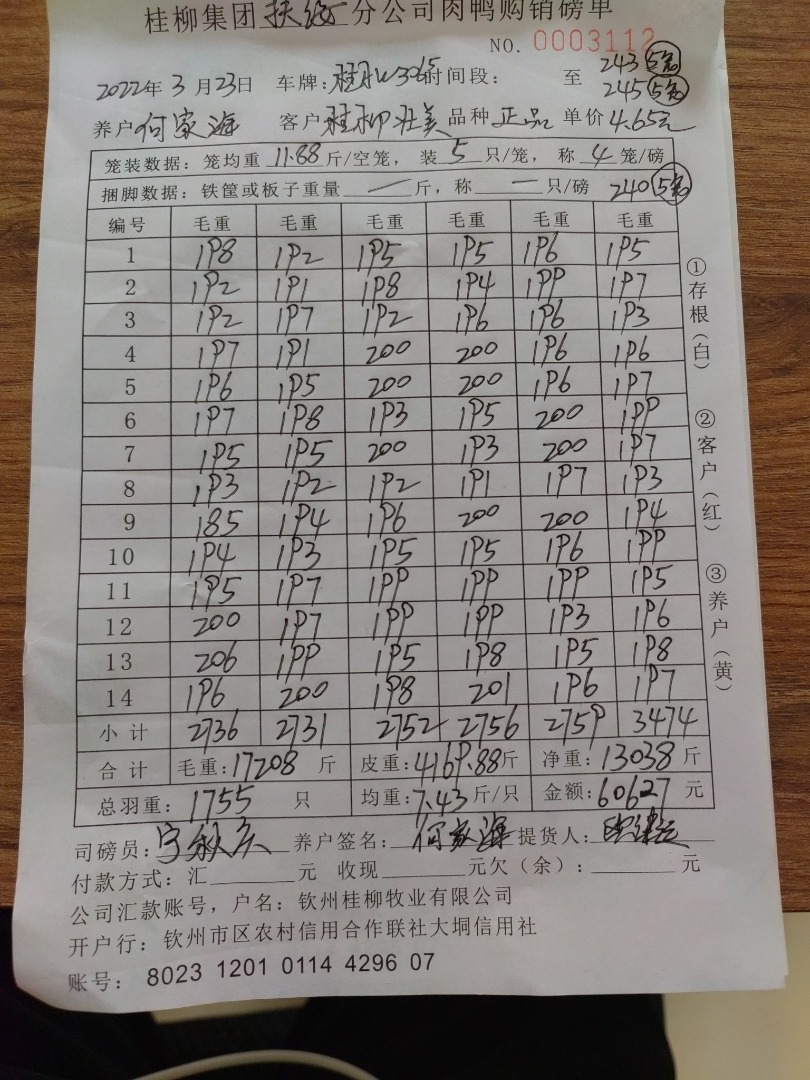 桂柳集团扶绥分公司肉鸭购销磅单
NO. 0003112
2022年3月23日 车牌:桂 3065 时间段: 至 243 5只
245 5只
养户 何家海 客户 桂柳壮美 品种 正品 单价 4.65元
笼装数据:笼均重 11.88 斤/空笼,装 5 只/笼,称 4 笼/磅
捆脚数据:铁筐或板子重量 — 斤,称 — 只/磅 240 5只
编号 毛重 毛重 毛重 毛重 毛重 毛重
1 198 192 195 195 196 195
2 192 191 198 194 199 197
3 192 197 192 196 196 193
4 197 191 200 200 196 196
5 196 195 200 200 196 197
6 197 198 193 195 200 199
7 195 195 200 193 200 197
8 193 192 192 191 197 193
9 185 194 196 200 200 194
10 194 193 195 195 196 199
11 195 197 199 199 199 195
12 200 197 199 199 193 196
13 206 199 195 198 195 198
14 196 200 198 201 196 197
小计 2736 2731 2752 2756 2759 3474
合计 毛重:17208 斤 皮重:4169.88斤 净重:13038 斤
总羽重:1755 只 均重:7.43 斤/只 金额:60627 元
司磅员: 养户签名: 何家海 提货人:
付款方式:汇 元 收现 元欠(余): 元
公司汇款账号,户名:钦州桂柳牧业有限公司
开户行:钦州市区农村信用合作联社大垌信用社
账号: 8023 1201 0114 4296 07
①存根(白)
②客户(红)
③养户(黄)